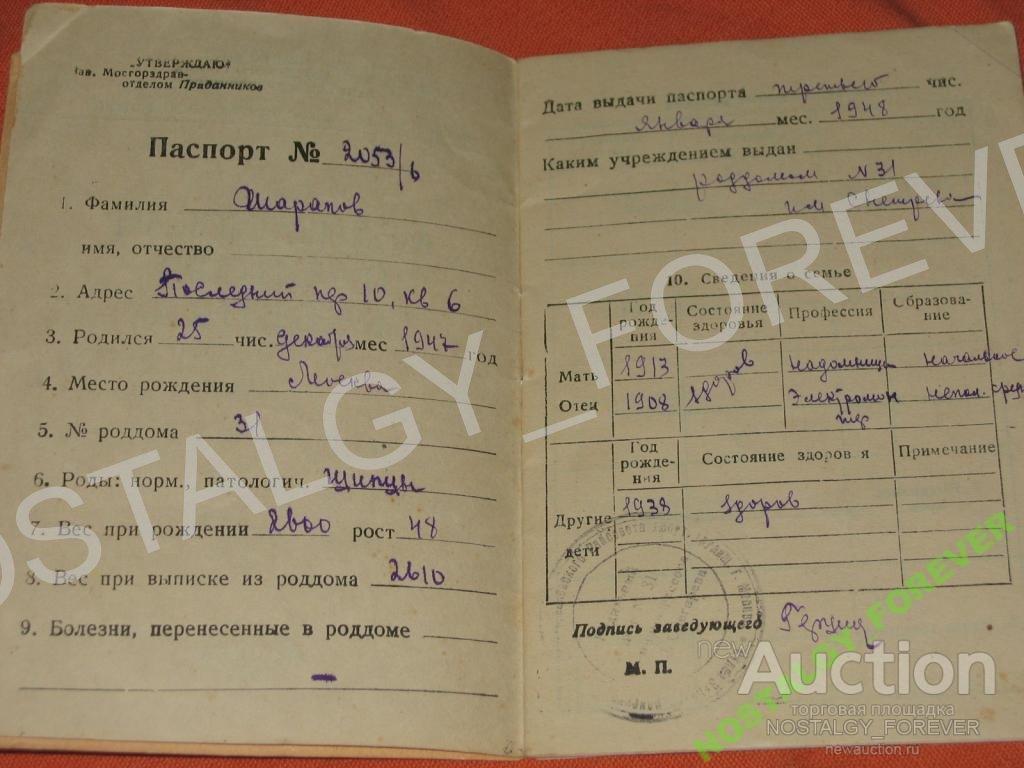 „УТВЕРЖДАЮ“
Зав. Мосгорздрав-
отделом Праданников
Паспорт № 2053/6
1. Фамилия Шарапов
имя, отчество
2. Адрес Последний пер 10, кв 6
3. Родился 25 чис. декабря мес 1947 год
4. Место рождения Москва
5. № роддома 31
6. Роды: норм., патологич. щипцы
7. Вес при рождении 2600 рост 48
8. Вес при выписке из роддома 2610
9. Болезни, перенесенные в роддоме
–
Дата выдачи паспорта третьего чис.
января мес. 1948 год
Каким учреждением выдан
роддомом N 31
им
10. Сведения о семье
Год рождения Состояние здоровья Профессия Образование
Мать 1913 здоров надомница начальное
Отец 1908 здоров электромон тер непол. сред
Год рождения Состояние здоров я Примечание
Другие дети 1938 здоров
Подпись заведующего
М. П.
NOSTALGY_FOREVER
NOSTALGY_FOREVER
newAuction
торговая площадка
NOSTALGY_FOREVER
newauction.ru